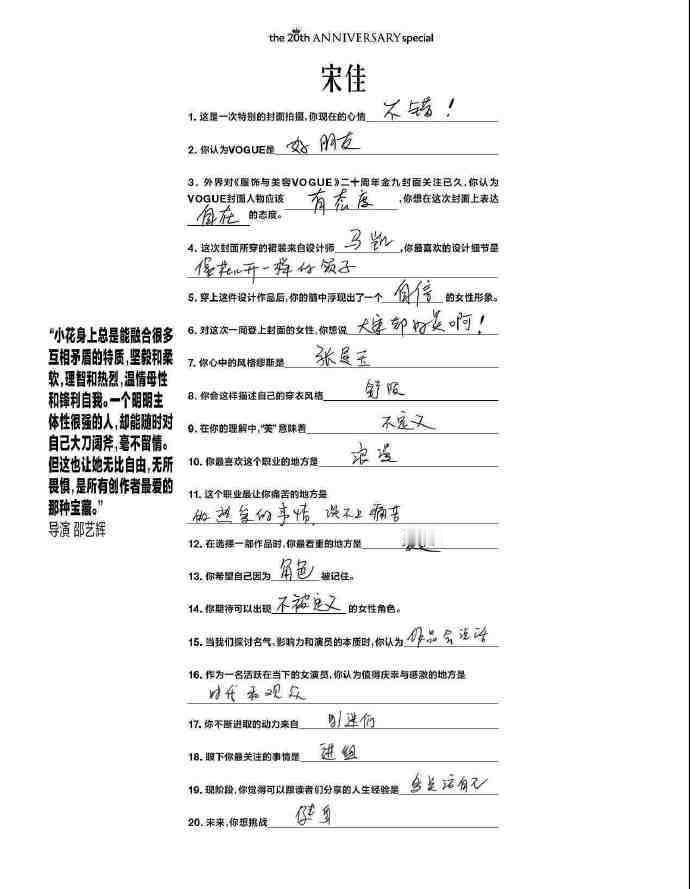 the 20th ANNIVERSARY special
宋佳
1. 这是一次特别的封面拍摄,你现在的心情 不错!
2. 你认为VOGUE是 好朋友
3. 外界对《服饰与美容VOGUE》二十周年金九封面关注已久,你认为
VOGUE封面人物应该 有态度 ,你想在这次封面上表达
自在 的态度。
4. 这次封面所穿的裙装来自设计师 马凯 ,你最喜欢的设计细节是
像花儿开一样的领子
5. 穿上这件设计作品后,你的脑中浮现出了一个 自信 的女性形象。
6. 对这次一同登上封面的女性,你想说 大家都好美啊!
7. 你心中的风格缪斯是 张曼玉
8. 你会这样描述自己的穿衣风格 舒服
9. 在你的理解中,“美”意味着 不定义
10. 你最喜欢这个职业的地方是 浪漫
11. 这个职业最让你痛苦的地方是
做热爱的事情,谈不上痛苦
12. 在选择一部作品时,你最看重的地方是
13. 你希望自己因为 角色 被记住。
14. 你期待可以出现 不被定义 的女性角色。
15. 当我们探讨名气、影响力和演员的本质时,你认为 作品会说话
16. 作为一名活跃在当下的女演员,你认为值得庆幸与感激的地方是
时代和观众
17. 你不断进取的动力来自 别迷信
18. 眼下你最关注的事情是 进组
19. 现阶段,你觉得可以跟读者们分享的人生经验是 多关注自己
20. 未来,你想挑战 健身
“小花身上总是能融合很多
互相矛盾的特质,坚毅和柔
软,理智和热烈,温情母性
和锋利自我。一个明明主
体性很强的人,却能随时对
自己大刀阔斧,毫不留情。
但这也让她无比自由,无所
畏惧,是所有创作者最爱的
那种宝藏。”
导演 邵艺辉